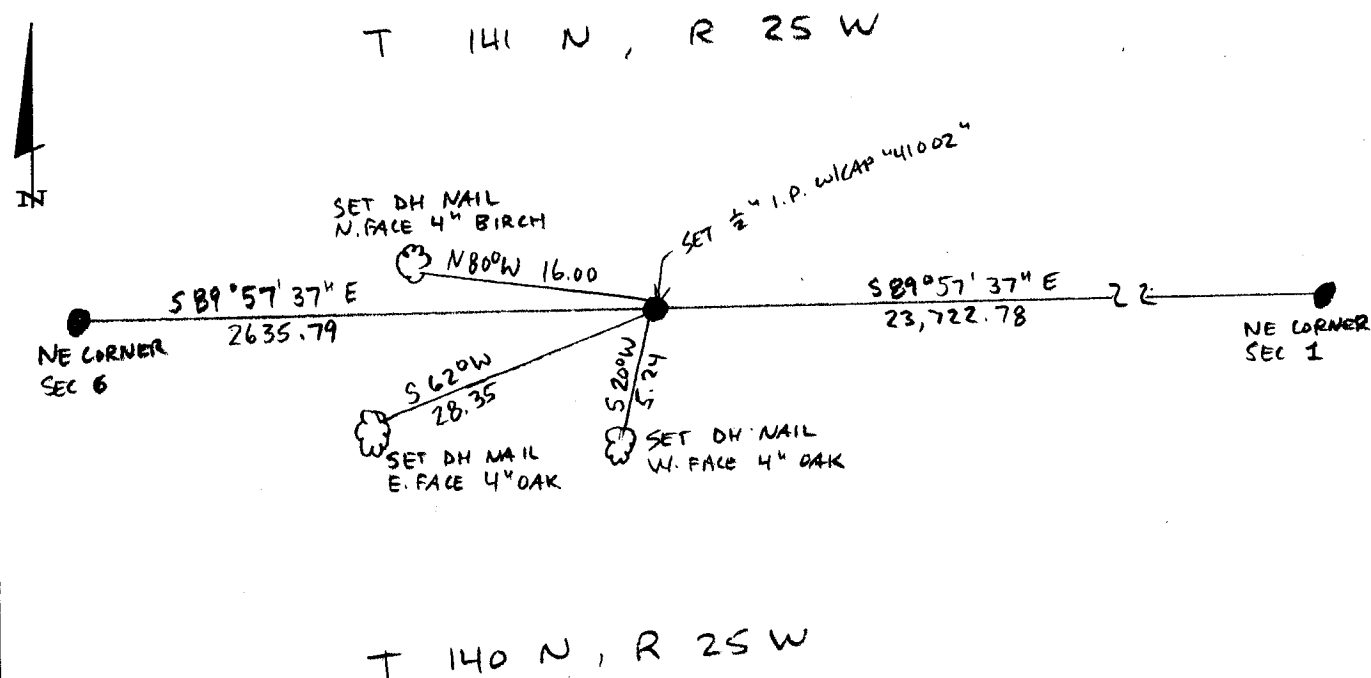 T 141 N, R 25 W
N
SET ½" I.P. W/CAP "41002"
SET DH NAIL
N. FACE 4" BIRCH
N80°W 16.00
S89°57'37"E
2635.79
S89°57'37"E
23,722.78
NE CORNER
SEC 6
NE CORNER
SEC 1
S62°W
28.35
S20°W
5.24
SET DH NAIL
E. FACE 4" OAK
SET DH NAIL
W. FACE 4" OAK
T 140 N, R 25 W